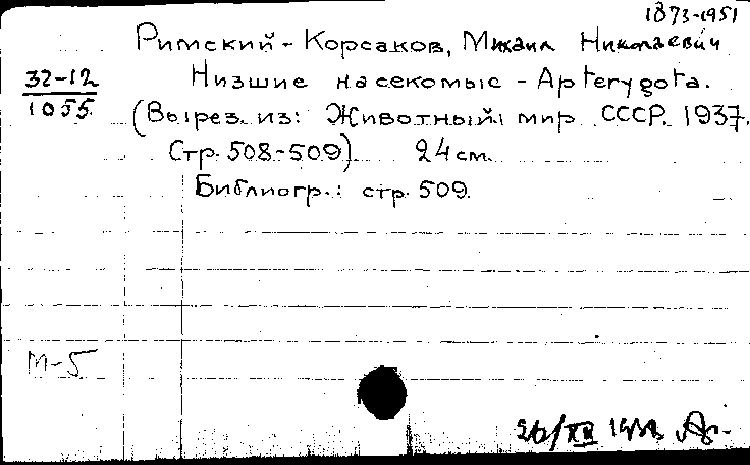 1873-1951
Римский-Корсаков, Михаил Николаевич
32-12
1055.
Низшие насекомые - Apterygota.
(Вырез. из: Животный мир СССР. 1937.
Стр. 508-509) 24 см.
Библиогр.: стр. 509.
М-5
26/XII